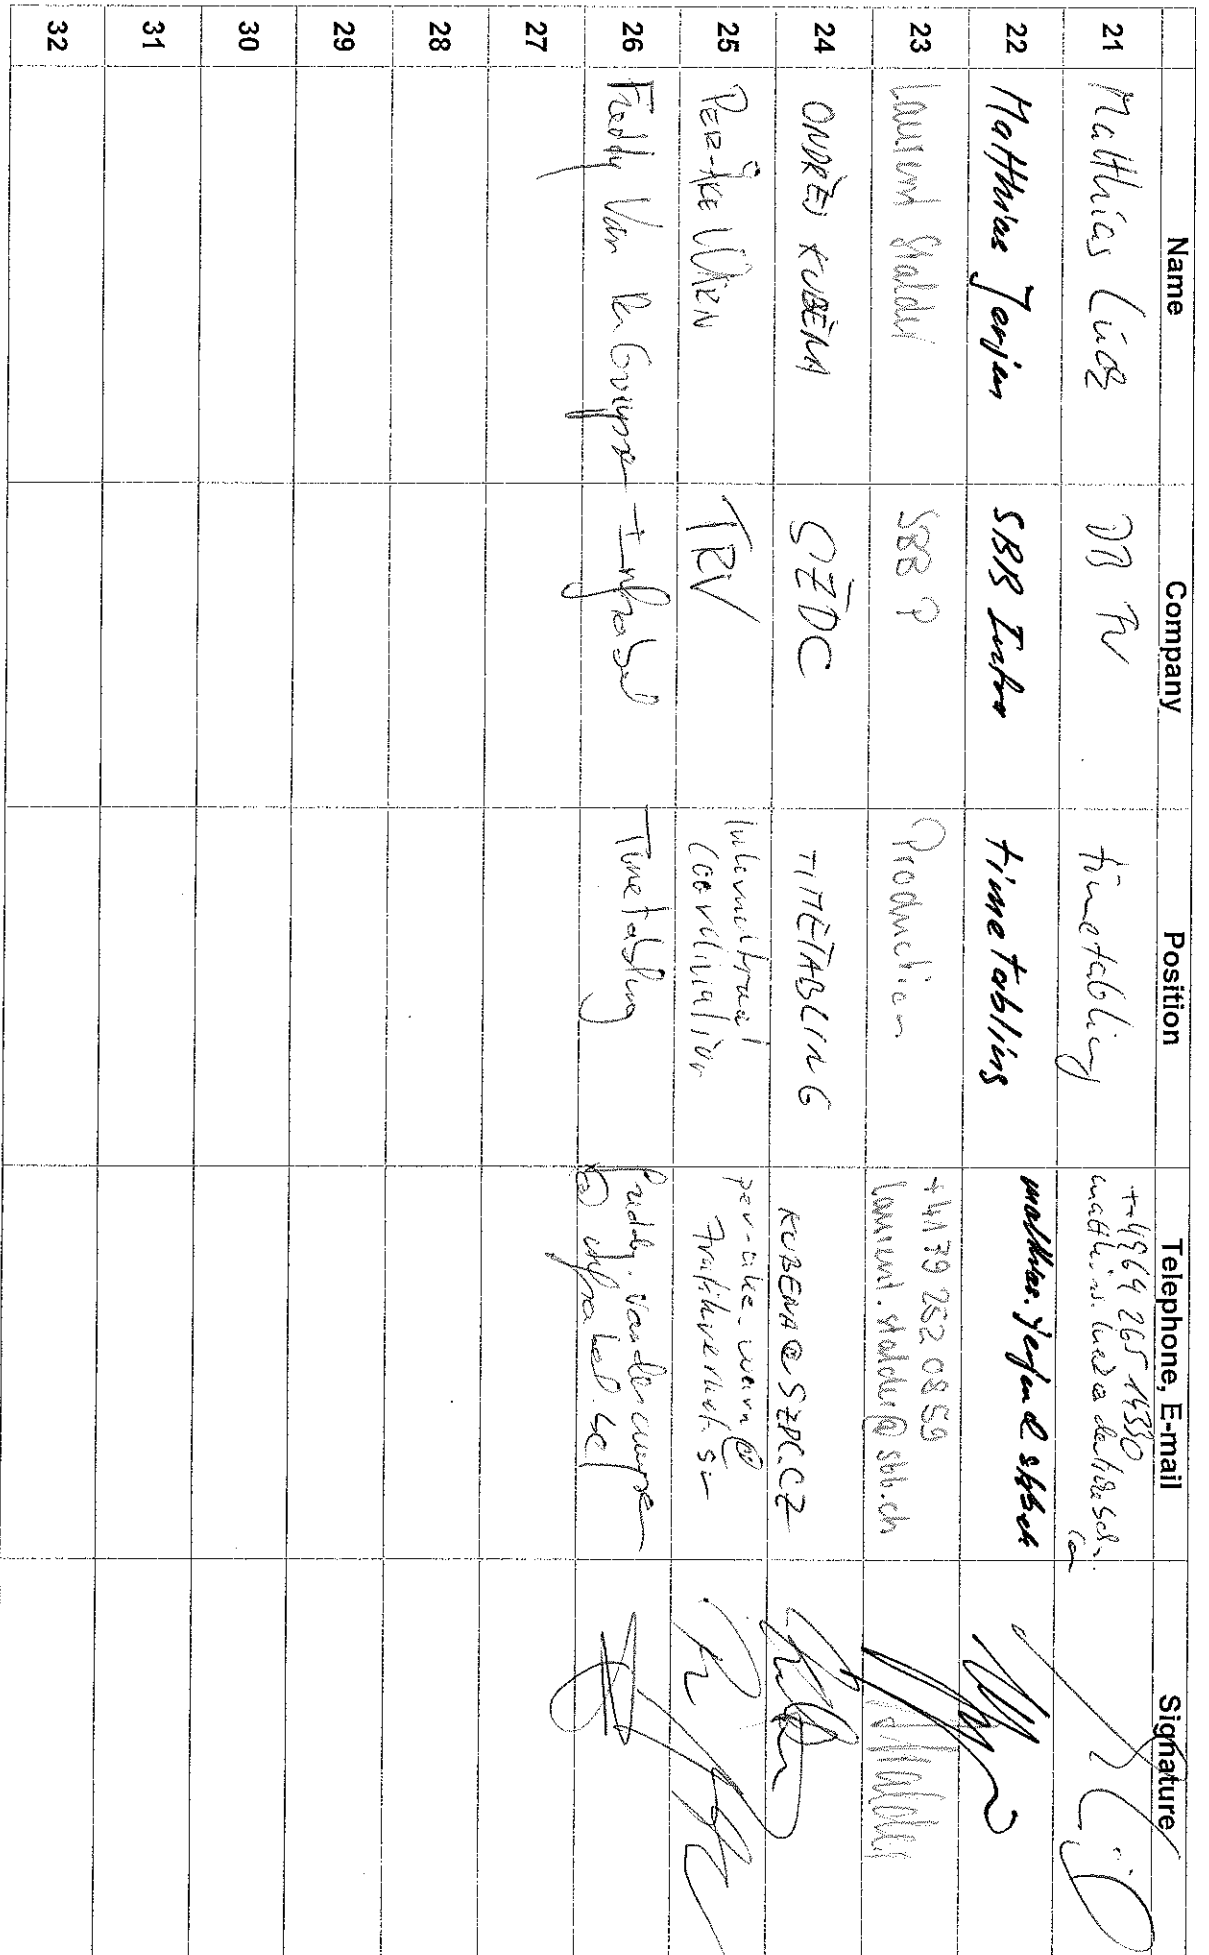 Name Company Position Telephone, E-mail Signature
21 Matthias Lüdz DB timetabling
22 Matthias Jerjen SBB Infra timetabling matthias.jerjen@sbb.ch
23 Laurent Stalder SBB P Production +41 79 252 08 59
laurent.stalder@sbb.ch
24 ONDŘEJ KUBĚNA SŽDC TIMETABLING KUBENA@SZDC.CZ
25 PER-ÅKE WÄRN TRV International
coordination
per-ake.warn@
trafikverket.se
26 Freddy Van Der Cruyssen Infrabel Timetabling
@infrabel.be
27
28
29
30
31
32